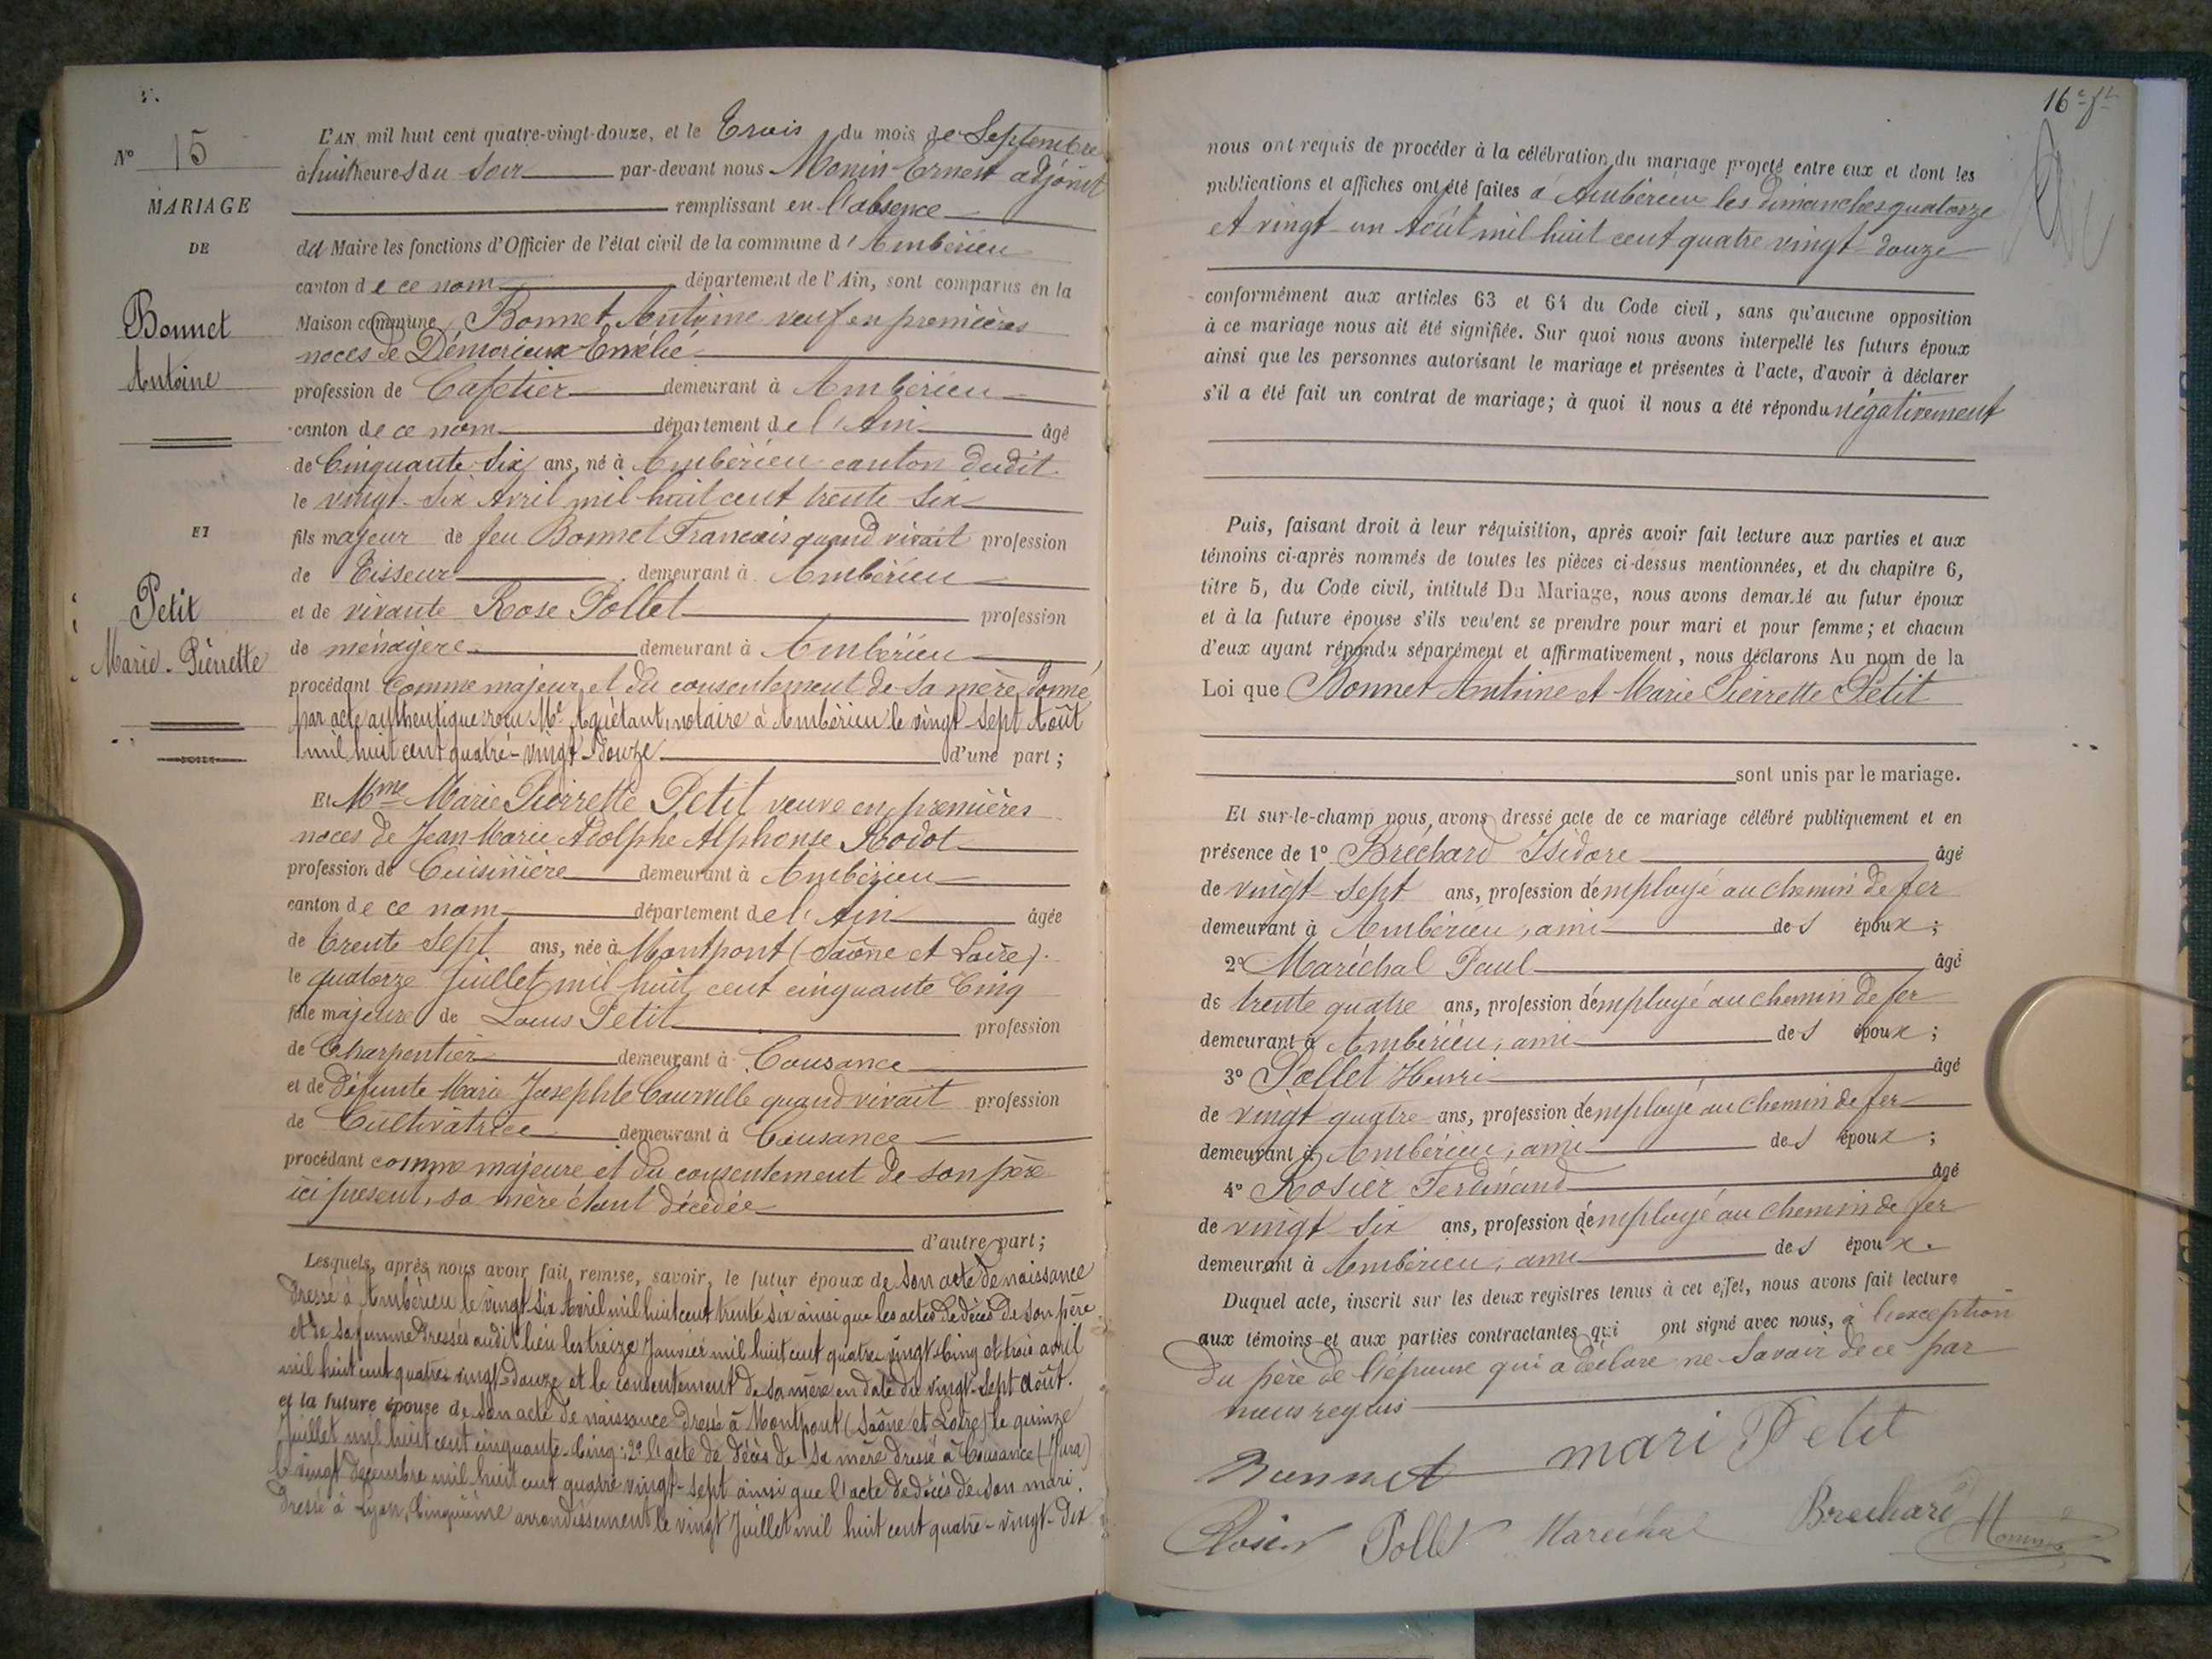 N° 15
MARIAGE
DE
Bonnet
Antoine
ET
Petit
Marie-Pierrette
L'AN mil huit cent quatre-vingt-douze, et le Trois du mois de Septembre
à huit heures du Soir par-devant nous Monin Ernest adjoint
remplissant en l'absence
du Maire les fonctions d'Officier de l'état civil de la commune d'Ambérieu
canton de ce nom département de l'Ain, sont comparus en la
Maison commune, Bonnet Antoine veuf en premières
noces de Démorieux Emélie
profession de Cafetier demeurant à Ambérieu
canton de ce nom département de l'Ain âgé
de Cinquante Six ans, né à Ambérieu canton dudit
le vingt-six Avril mil huit cent trente six
fils majeur de feu Bonnet Francois quand vivait profession
de Tisseur demeurant à Ambérieu
et de vivante Rose Pollet profession
de ménagère demeurant à Ambérieu
procédant Comme majeur et du consentement de Sa mère, donné
par acte authentique reçu Me Aguétant, notaire à Ambérieu le vingt-sept Août
mil huit cent quatre-vingt-douze d'une part;
Et Mme Marie Pierrette Petit veuve en premières
noces de Jean Marie Adolphe Alphonse Rodot
profession de Cuisinière demeurant à Ambérieu
canton de ce nom département de l'Ain âgée
de Trente Sept ans, née à Montpont (Saône et Loire).
le quatorze Juillet mil huit cent cinquante Cinq
fille majeure de Louis Petit profession
de Charpentier demeurant à Cousance
et de défunte Marie Josephte Courville quand vivait profession
de Cultivatrice demeurant à Cousance
procédant comme majeure et du consentement de son père
ici présent, sa mère étant décédée
d'autre part;
Lesquels, après nous avoir fait remise, savoir, le futur époux de Son acte de naissance
dressé à Ambérieu le vingt six Avril mil huit cent trente six ainsi que les actes de décès de son père
et de sa femme dressés audit lieu les treize Janvier mil huit cent quatre vingt Cinq et trois avril
mil huit cent quatre vingt-douze et le consentement de sa mère en date du vingt-sept août.
et la future épouse de Son acte de naissance dressé à Montpont (Saône et Loire) le quinze
Juillet mil huit cent cinquante-Cinq; 2° l'acte de décès de sa mère dressé à Cousance (Jura)
le vingt décembre mil huit cent quatre vingt-sept ainsi que l'acte de décès de son mari.
dressé à Lyon, Cinquième arrondissement le vingt Juillet mil huit cent quatre-vingt-dix
16e ft
nous ont requis de procéder à la célébration du mariage projeté entre eux et dont les
publications et affiches ont été faites à Ambérieu les dimanches quatorze
et vingt-un Août mil huit cent quatre vingt-douze
conformément aux articles 63 et 64 du Code civil, sans qu'aucune opposition
à ce mariage nous ait été signifiée. Sur quoi nous avons interpellé les futurs époux
ainsi que les personnes autorisant le mariage et présentes à l'acte, d'avoir à déclarer
s'il a été fait un contrat de mariage; à quoi il nous a été répondu négativement
Puis, faisant droit à leur réquisition, après avoir fait lecture aux parties et aux
témoins ci-après nommés de toutes les pièces ci-dessus mentionnées, et du chapitre 6,
titre 5, du Code civil, intitulé Du Mariage, nous avons demandé au futur époux
et à la future épouse s'ils veulent se prendre pour mari et pour femme; et chacun
d'eux ayant répondu séparément et affirmativement, nous déclarons Au nom de la
Loi que Bonnet Antoine et Marie Pierrette Petit
sont unis par le mariage.
Et sur-le-champ nous, avons dressé acte de ce mariage célébré publiquement et en
présence de 1° Bréchard Isidore âgé
de vingt-sept ans, profession d'employé au chemin de fer
demeurant à Ambérieu, ami des époux;
2° Maréchal Paul âgé
de trente quatre ans, profession d'employé au chemin de fer
demeurant à Ambérieu, ami des époux;
3° Pollet Henri âgé
de vingt quatre ans, profession d'employé au chemin de fer
demeurant à Ambérieu, ami des époux;
4° Rosier Ferdinand âgé
de vingt Six ans, profession d'employé au chemin de fer
demeurant à Ambérieu, ami des époux.
Duquel acte, inscrit sur les deux registres tenus à cet effet, nous avons fait lecture
aux témoins et aux parties contractantes qui ont signé avec nous, à l'exception
du père de l'épouse qui a déclaré ne Savoir de ce par
nous requis
Bonnet mari Petit
Rosier Pollet Maréchal Brechard Monin